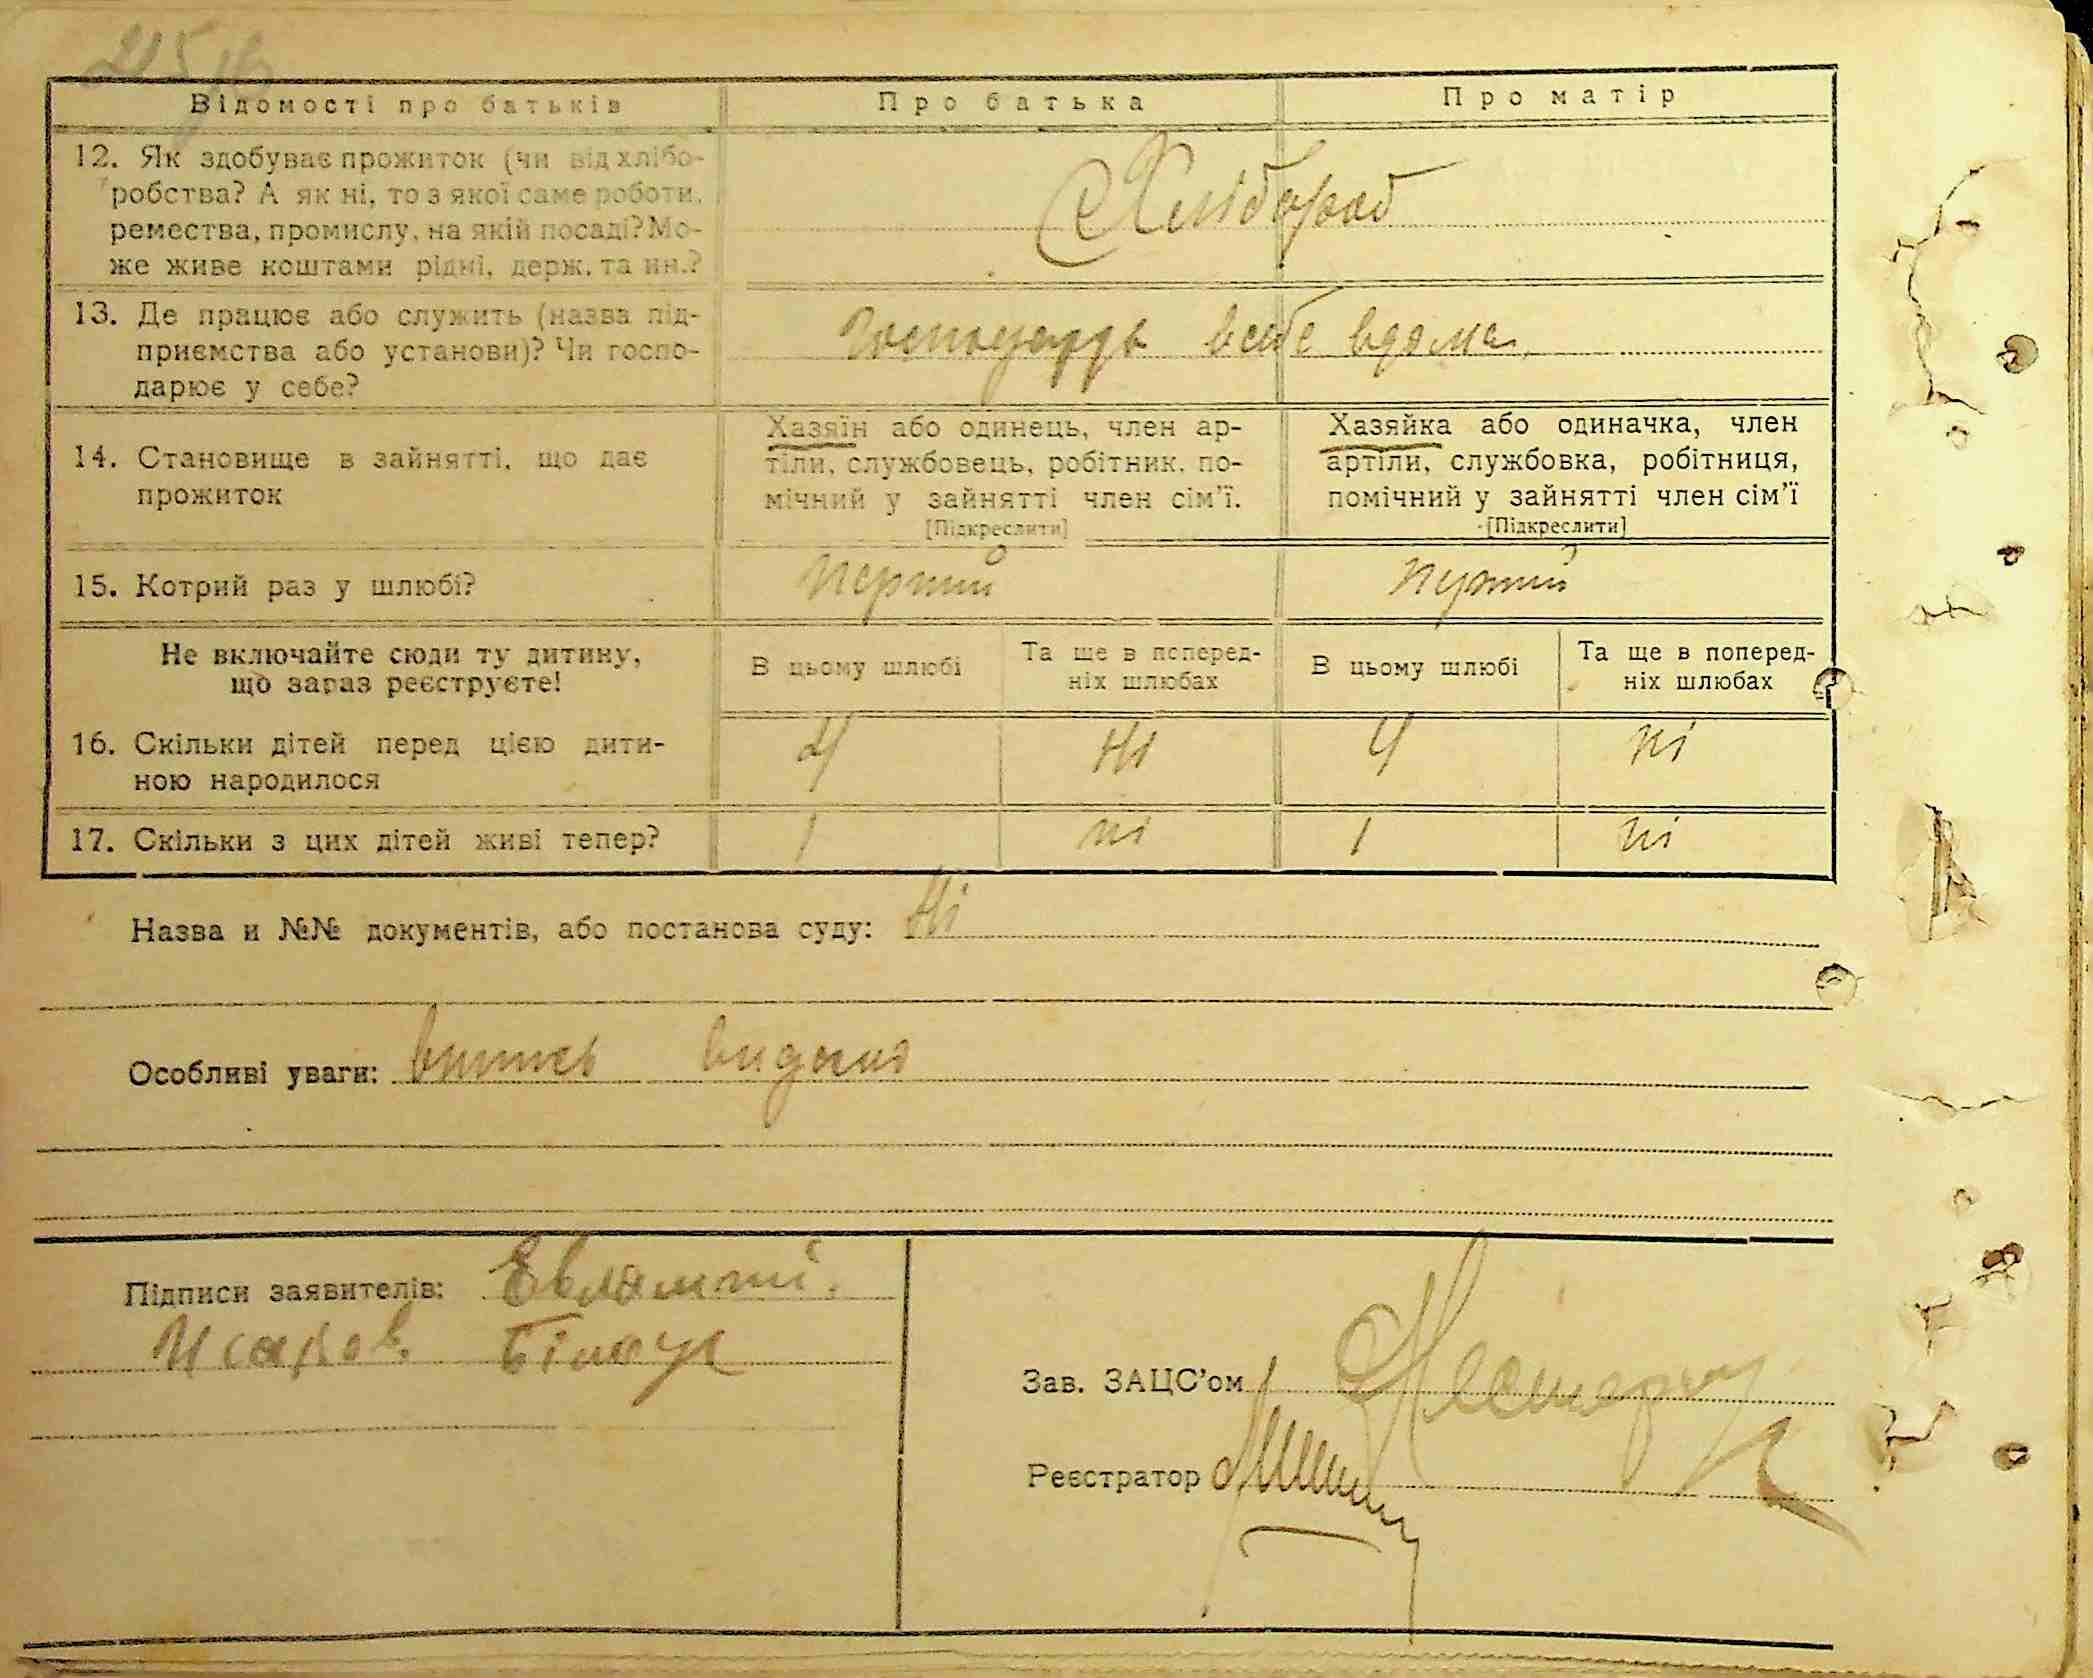 Відомості про батьків Про батька Про матір
12. Як здобуває прожиток (чи від хлібо-
робства? А як ні, то з якої саме роботи,
ремества, промислу, на якій посаді? Мо-
же живе коштами рідні, держ. та ин.?
Хлібороб
13. Де працює або служить (назва під-
приємства або установи)? Чи госпо-
дарює у себе?
всебе вдома
14. Становище в зайнятті, що дає
прожиток
Хазяїн або одинець, член ар-
тіли, службовець, робітник, по-
мічний у зайнятті член сім'ї.
[Підкреслити]
Хазяйка або одиначка, член
артіли, службовка, робітниця,
помічний у зайнятті член сім'ї
[Підкреслити]
15. Котрий раз у шлюбі? перший перший
Не включайте сюди ту дитину,
що зараз реєструєте!
В цьому шлюбі
Та ще в поперед-
ніх шлюбах
В цьому шлюбі
Та ще в поперед-
ніх шлюбах
16. Скільки дітей перед цією дити-
ною народилося
4 Ні 4 ні
17. Скільки з цих дітей живі тепер? 1 ні 1 ні
Назва и №№ документів, або постанова суду: Ні
Особливі уваги: випись видана
Підписи заявителів: Евлампі.
Ісаков. Білоус
Зав. ЗАЦС'ом
Реєстратор